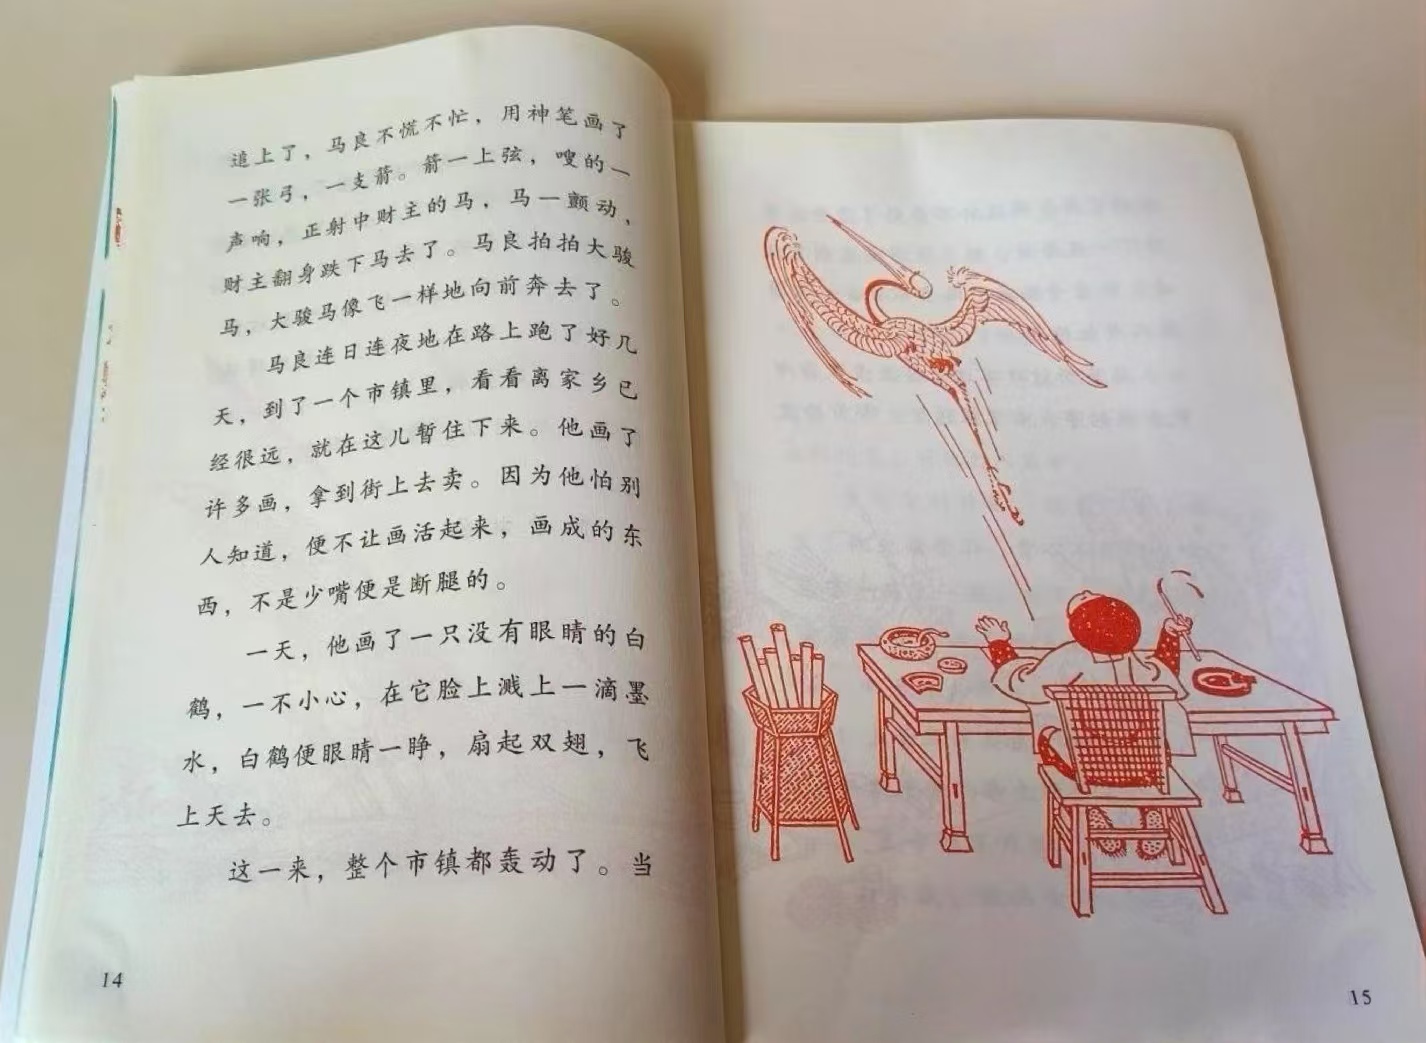 追上了，马良不慌不忙，用神笔画了
一张弓，一支箭。箭一上弦，嗖的一
声响，正射中财主的马，马一颤动，
财主翻身跌下马去了。马良拍拍大骏
马，大骏马像飞一样地向前奔去了。
马良连日连夜地在路上跑了好几
天，到了一个市镇里，看看离家乡已
经很远，就在这儿暂住下来。他画了
许多画，拿到街上去卖。因为他怕别
人知道，便不让画活起来，画成的东
西，不是少嘴便是断腿的。
一天，他画了一只没有眼睛的白
鹤，一不小心，在它脸上溅上一滴墨
水，白鹤便眼睛一睁，扇起双翅，飞
上天去。
这一来，整个市镇都轰动了。当
14
15